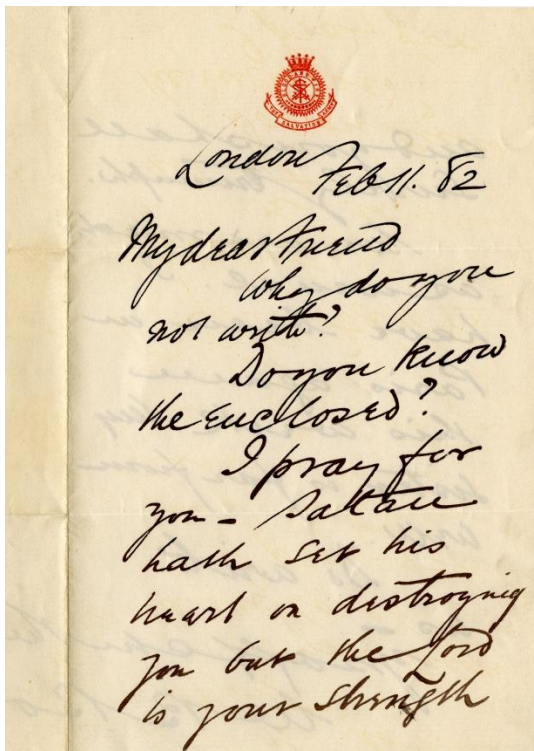 THE SALVATION ARMY
London
Feb 11. 82
My dear Friend
Why do you
not write?
Do you know
the enclosed?
I pray for
you – Satan
hath set his
heart on destroying
you but the Lord
is your strength